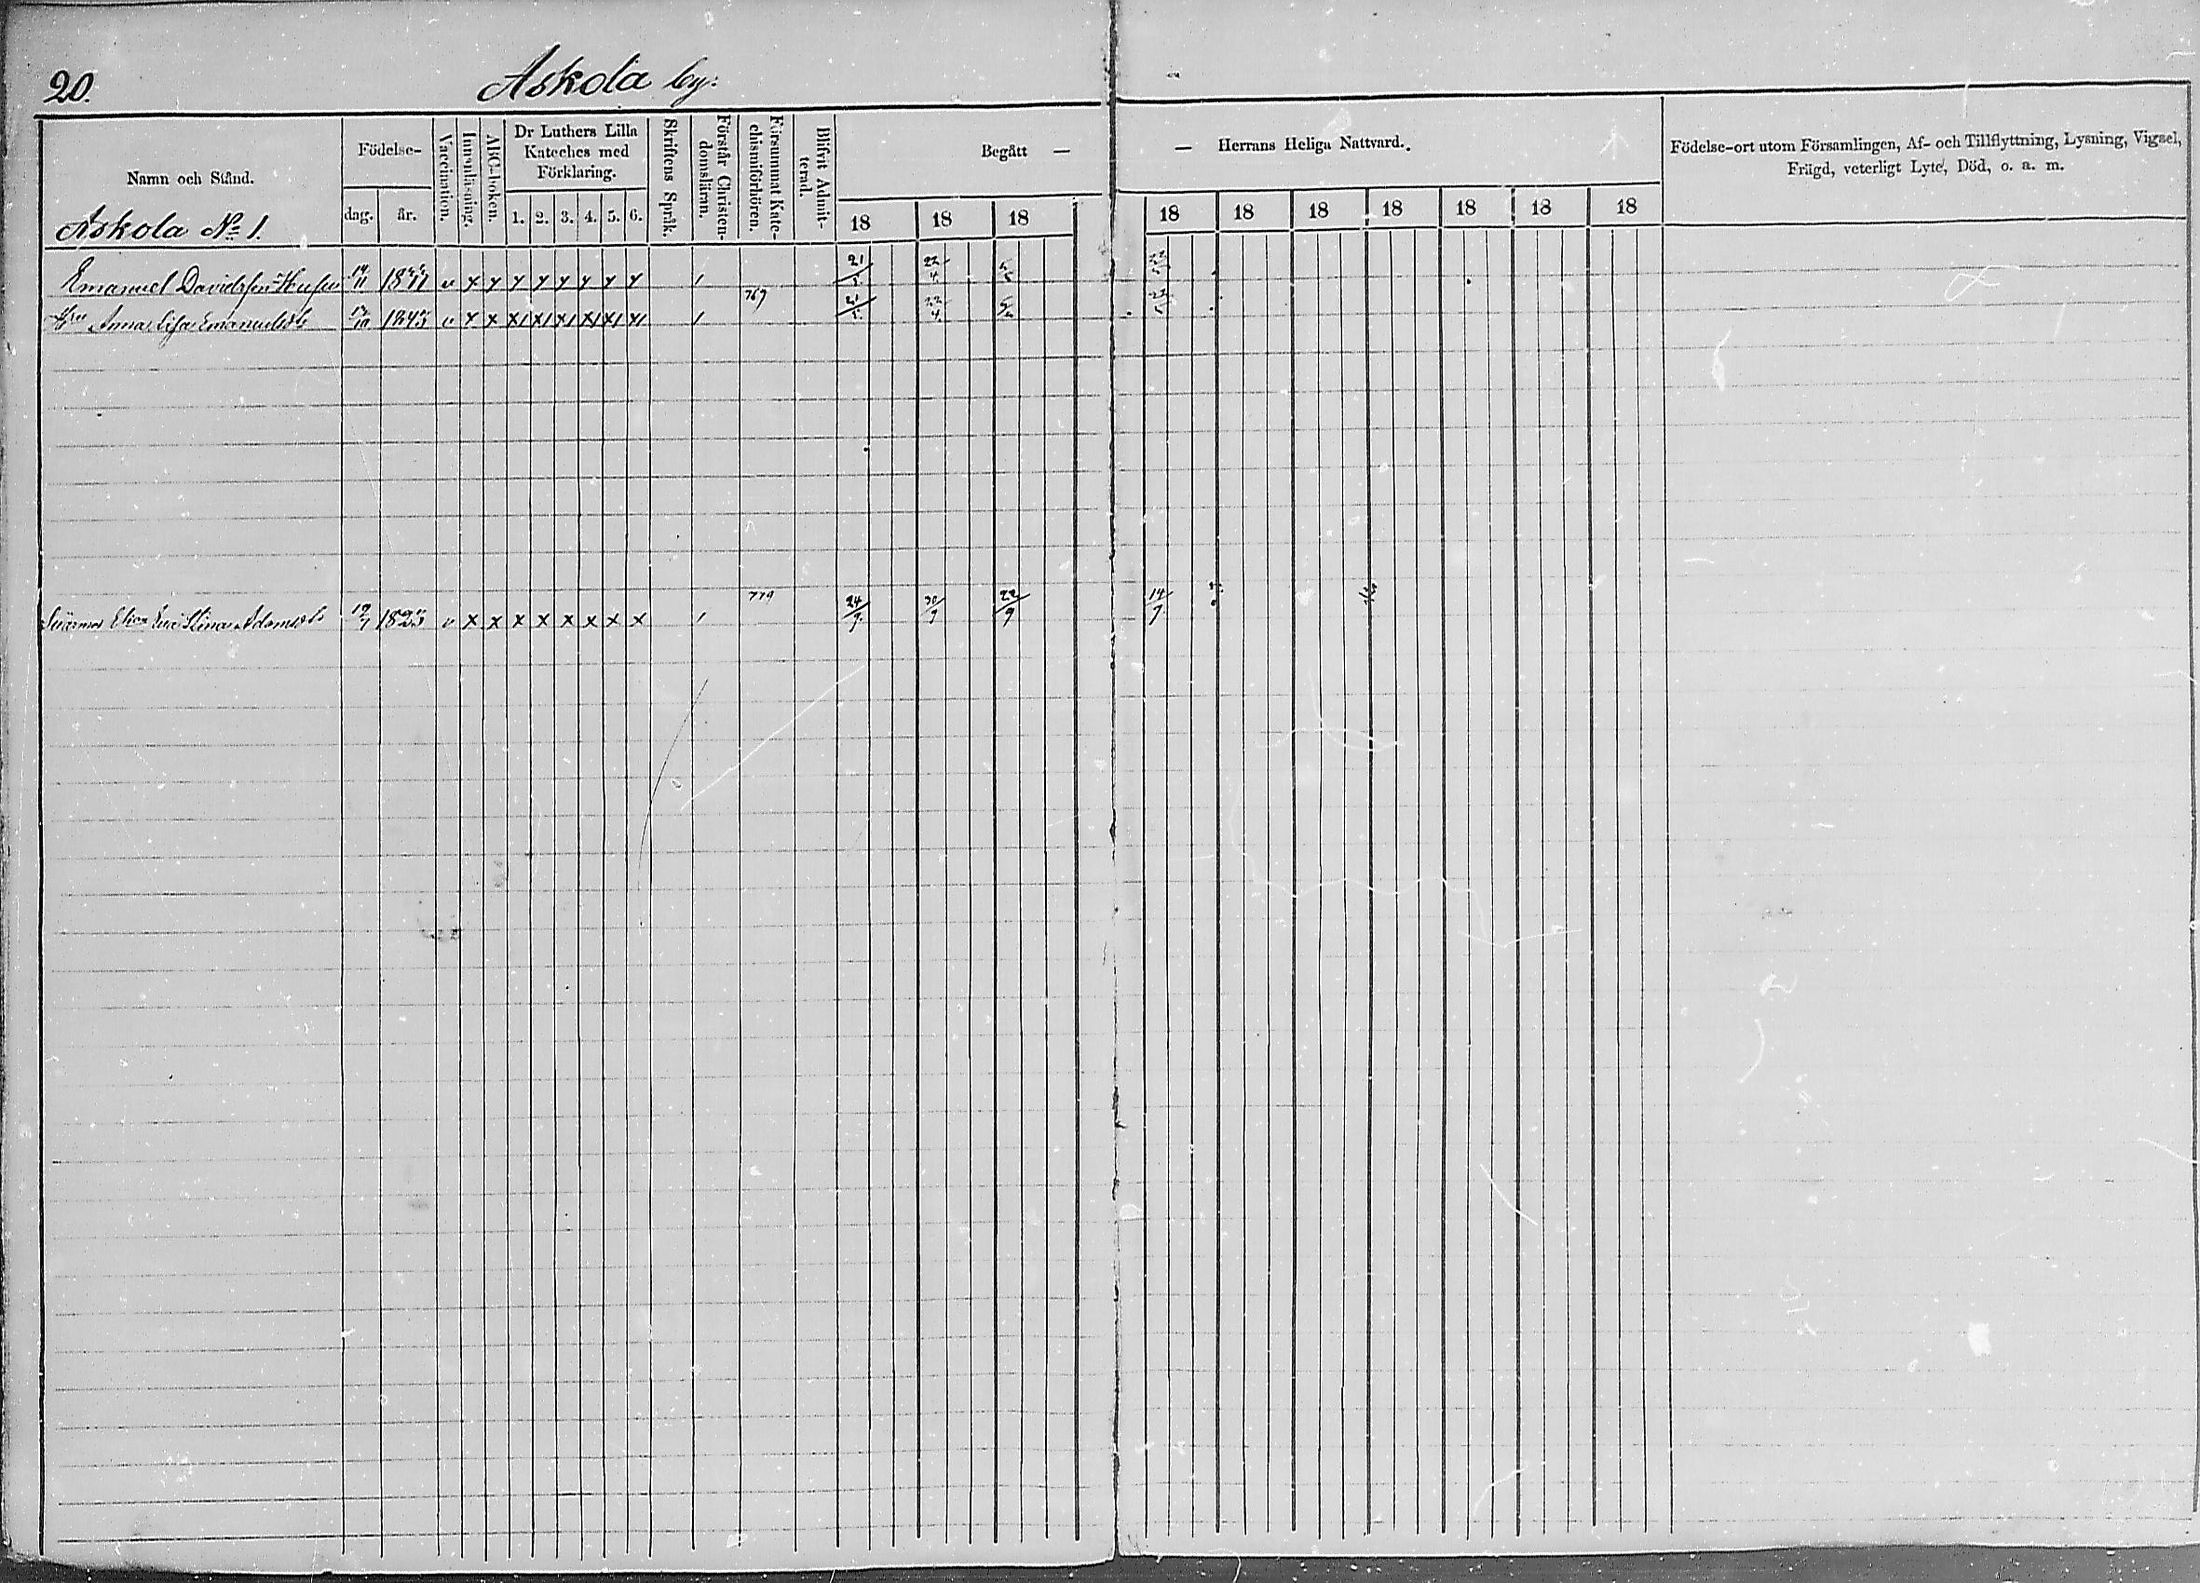 20.
Askola by:
Namn och Stånd.
Födelse-
dag.
år.
Vaccination.
Innanläsning.
ABC-boken.
Dr Luthers Lilla
Kateches med
Förklaring.
1. 2. 3. 4. 5. 6.
Skriftens Språk.
Förstår Christen-
domsläran.
Försummat Kate-
chismiförhören.
Blifvit Admit-
terad.
Begått —
— Herrans Heliga Nattvard.
18 18 18 18 18 18 18 18 18 18
Födelse-ort utom Församlingen, Af- och Tillflyttning, Lysning, Vigsel,
Frägd, veterligt Lyte, Död, o. a. m.
Askola No 1.
Emanuel Davidsson v x x x x x x x x 1 21/5 22/4
Anna Lisa Emanuelsdr v x x x x x x x x 1 769 21/5 22/4
Stina Adamsdr v x x x x x x x x 1 779 24/9 30/9 22/9 14/7